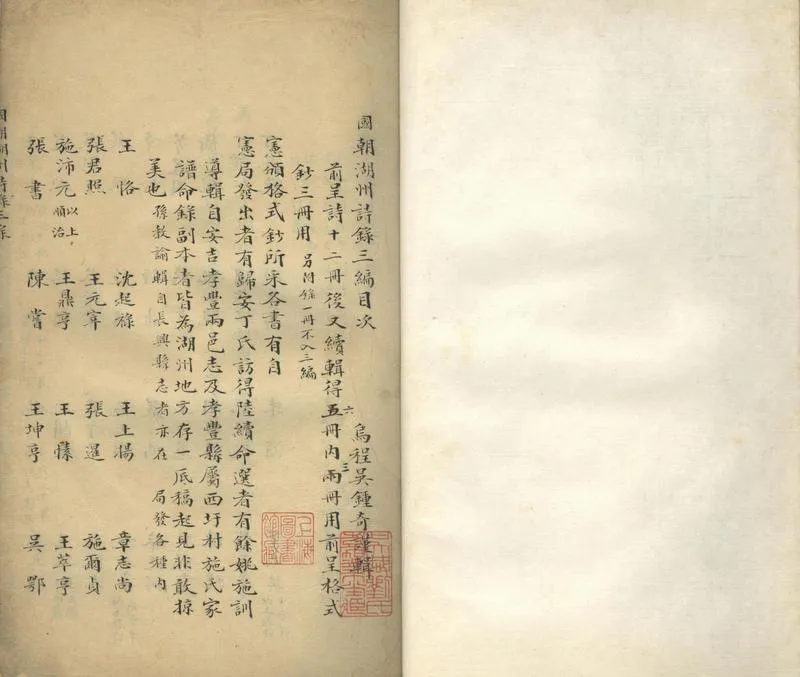 國朝湖州詩錄三編目次
烏程吳鍾奇謹輯
前呈詩十二冊後又續輯得五六冊內兩三冊用前呈格式
鈔三冊用另附錄一冊不入三編
憲頒格式鈔所采各書有自
憲局發出者有歸安丁氏訪得陸續命選者有餘姚施訓
導輯自安吉孝豐兩邑志及孝豐縣屬西圩村施氏家
譜命錄副本者皆為湖州地方存一底稿起見非敢掠
美也孫教諭輯自長興縣志者亦在局發各種內
王恪 沈起祿 王上揚 章志尚
張君照 王元宰 張暹 施爾貞
施沛元以上順治 王鼎亨 王愫 王萃亨
張書 陳嘗 王坤亨 吳鄂
國朝湖州詩錄三編